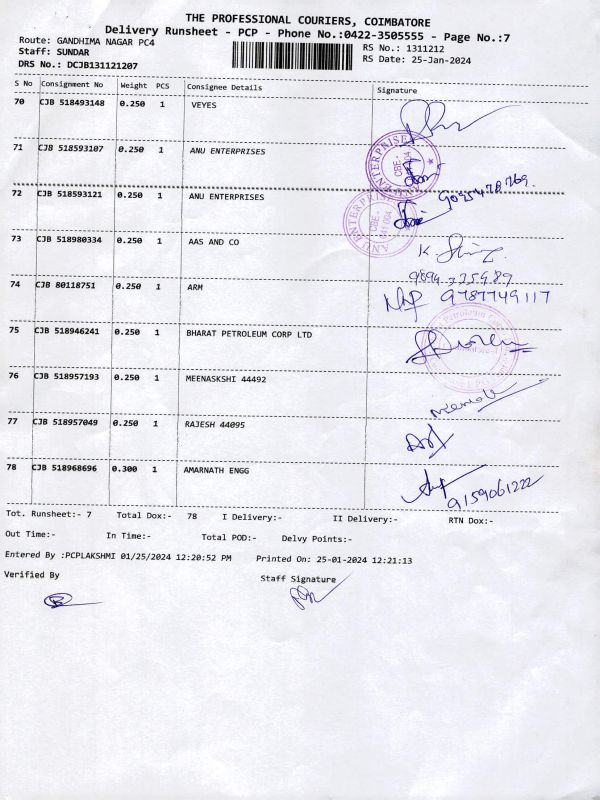 THE PROFESSIONAL COURIERS, COIMBATORE
Delivery Runsheet - PCP - Phone No.:0422-3505555 - Page No.:7
Route: GANDHIMA NAGAR PC4
RS No.: 1311212
Staff: SUNDAR
RS Date: 25-Jan-2024
DRS No.: DCJB131121207
S No Consignment No Weight PCS Consignee Details Signature
70 CJB 518493148 0.250 1 VEYES
71 CJB 518593107 0.250 1 ANU ENTERPRISES
72 CJB 518593121 0.250 1 ANU ENTERPRISES
73 CJB 518980334 0.250 1 AAS AND CO
74 CJB 80118751 0.250 1 ARM 9787749117
75 CJB 518946241 0.250 1 BHARAT PETROLEUM CORP LTD
76 CJB 518957193 0.250 1 MEENASKSHI 44492
77 CJB 518957049 0.250 1 RAJESH 44095
78 CJB 518968696 0.300 1 AMARNATH ENGG 9159061222
Tot. Runsheet:- 7 Total Dox:- 78 I Delivery:- II Delivery:- RTN Dox:-
Out Time:- In Time:- Total POD:- Delvy Points:-
Entered By :PCPLAKSHMI 01/25/2024 12:20:52 PM Printed On: 25-01-2024 12:21:13
Verified By Staff Signature